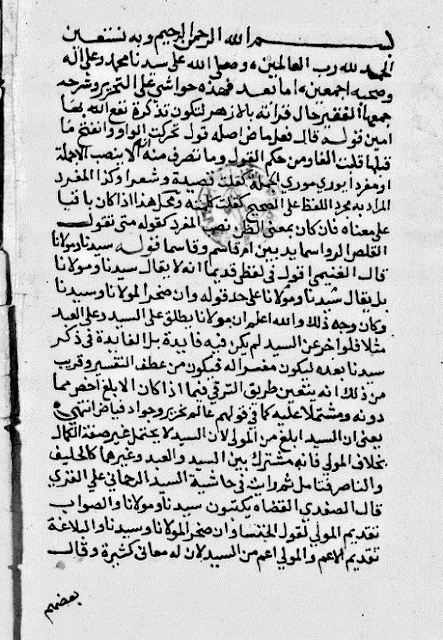 بسم الله الرحمن الرحيم وبه نستعين
الحمد لله رب العالمين، وصلى الله على سيدنا محمد وعلى اله
وصحبه اجمعين، اما بعد فهذه حواشي على التحرير وشرحه
جمعها الفقير حال قراته بالازهر لتكون تذكرة نفع الله بها
امين قوله قال فعل ماض اصله قول تحركت الواو وانفتح ما
قبلها قلبت الفا ومن حكم القول وما تصرف منه ان لا ينصب الا جملة
او مفردا يودي مودي الجملة كقلت قصيدة وشعرا وكذا المفرد
المراد به مجرد اللفظ على الصحيح كقلت كلمة ومحل هذا اذا كان باقيا
على معناه فان كان بمعنى الظن نصب المفرد كقوله متى تقول
القلص الرواسما يدنين ام قاسم وقاسما قوله سيدنا ومولانا
قال الغنيمي قول في لفظي قديما انه لا يقال سيدنا ومولانا
بل يقال سيدنا ومولانا على حد قوله وان صخر المولانا وسيدنا
وكان وجه ذلك والله اعلم ان مولانا يطلق على السيد وعلى العبد
مثلا فلو اخر عن السيد لم يكن فيه فايدة بل الفايدة في ذكر
سيدنا بعده ليكون مفسرا له فيكون من عطف التفسير وقريب
من ذلك انه يتعين طريق الترقي فيما اذا كان الابلغ اخص مما
دونه ومشتملا عليه كما في قولهم عالم نحرير وجواد فياض انتهى
يعني ان السيد ابلغ من المولى لان السيد لا يحتمل غير صفة الكمال
بخلاف المولى فانه مشترك بين السيد والعبد وغيرهما كالحليف
والناصر فتامل ثم رايت في حاشية السيد الرحماني على الغزي
قال الصفدي القضاه يكتبون سيدنا ومولانا والصواب
تقديم المولى لقول الخنسا وان صخر المولانا وسيدنا والبلاغة
تقديم الاعم والمولى اعم من السيد لان له معاني كثيرة وقال
بعضهم